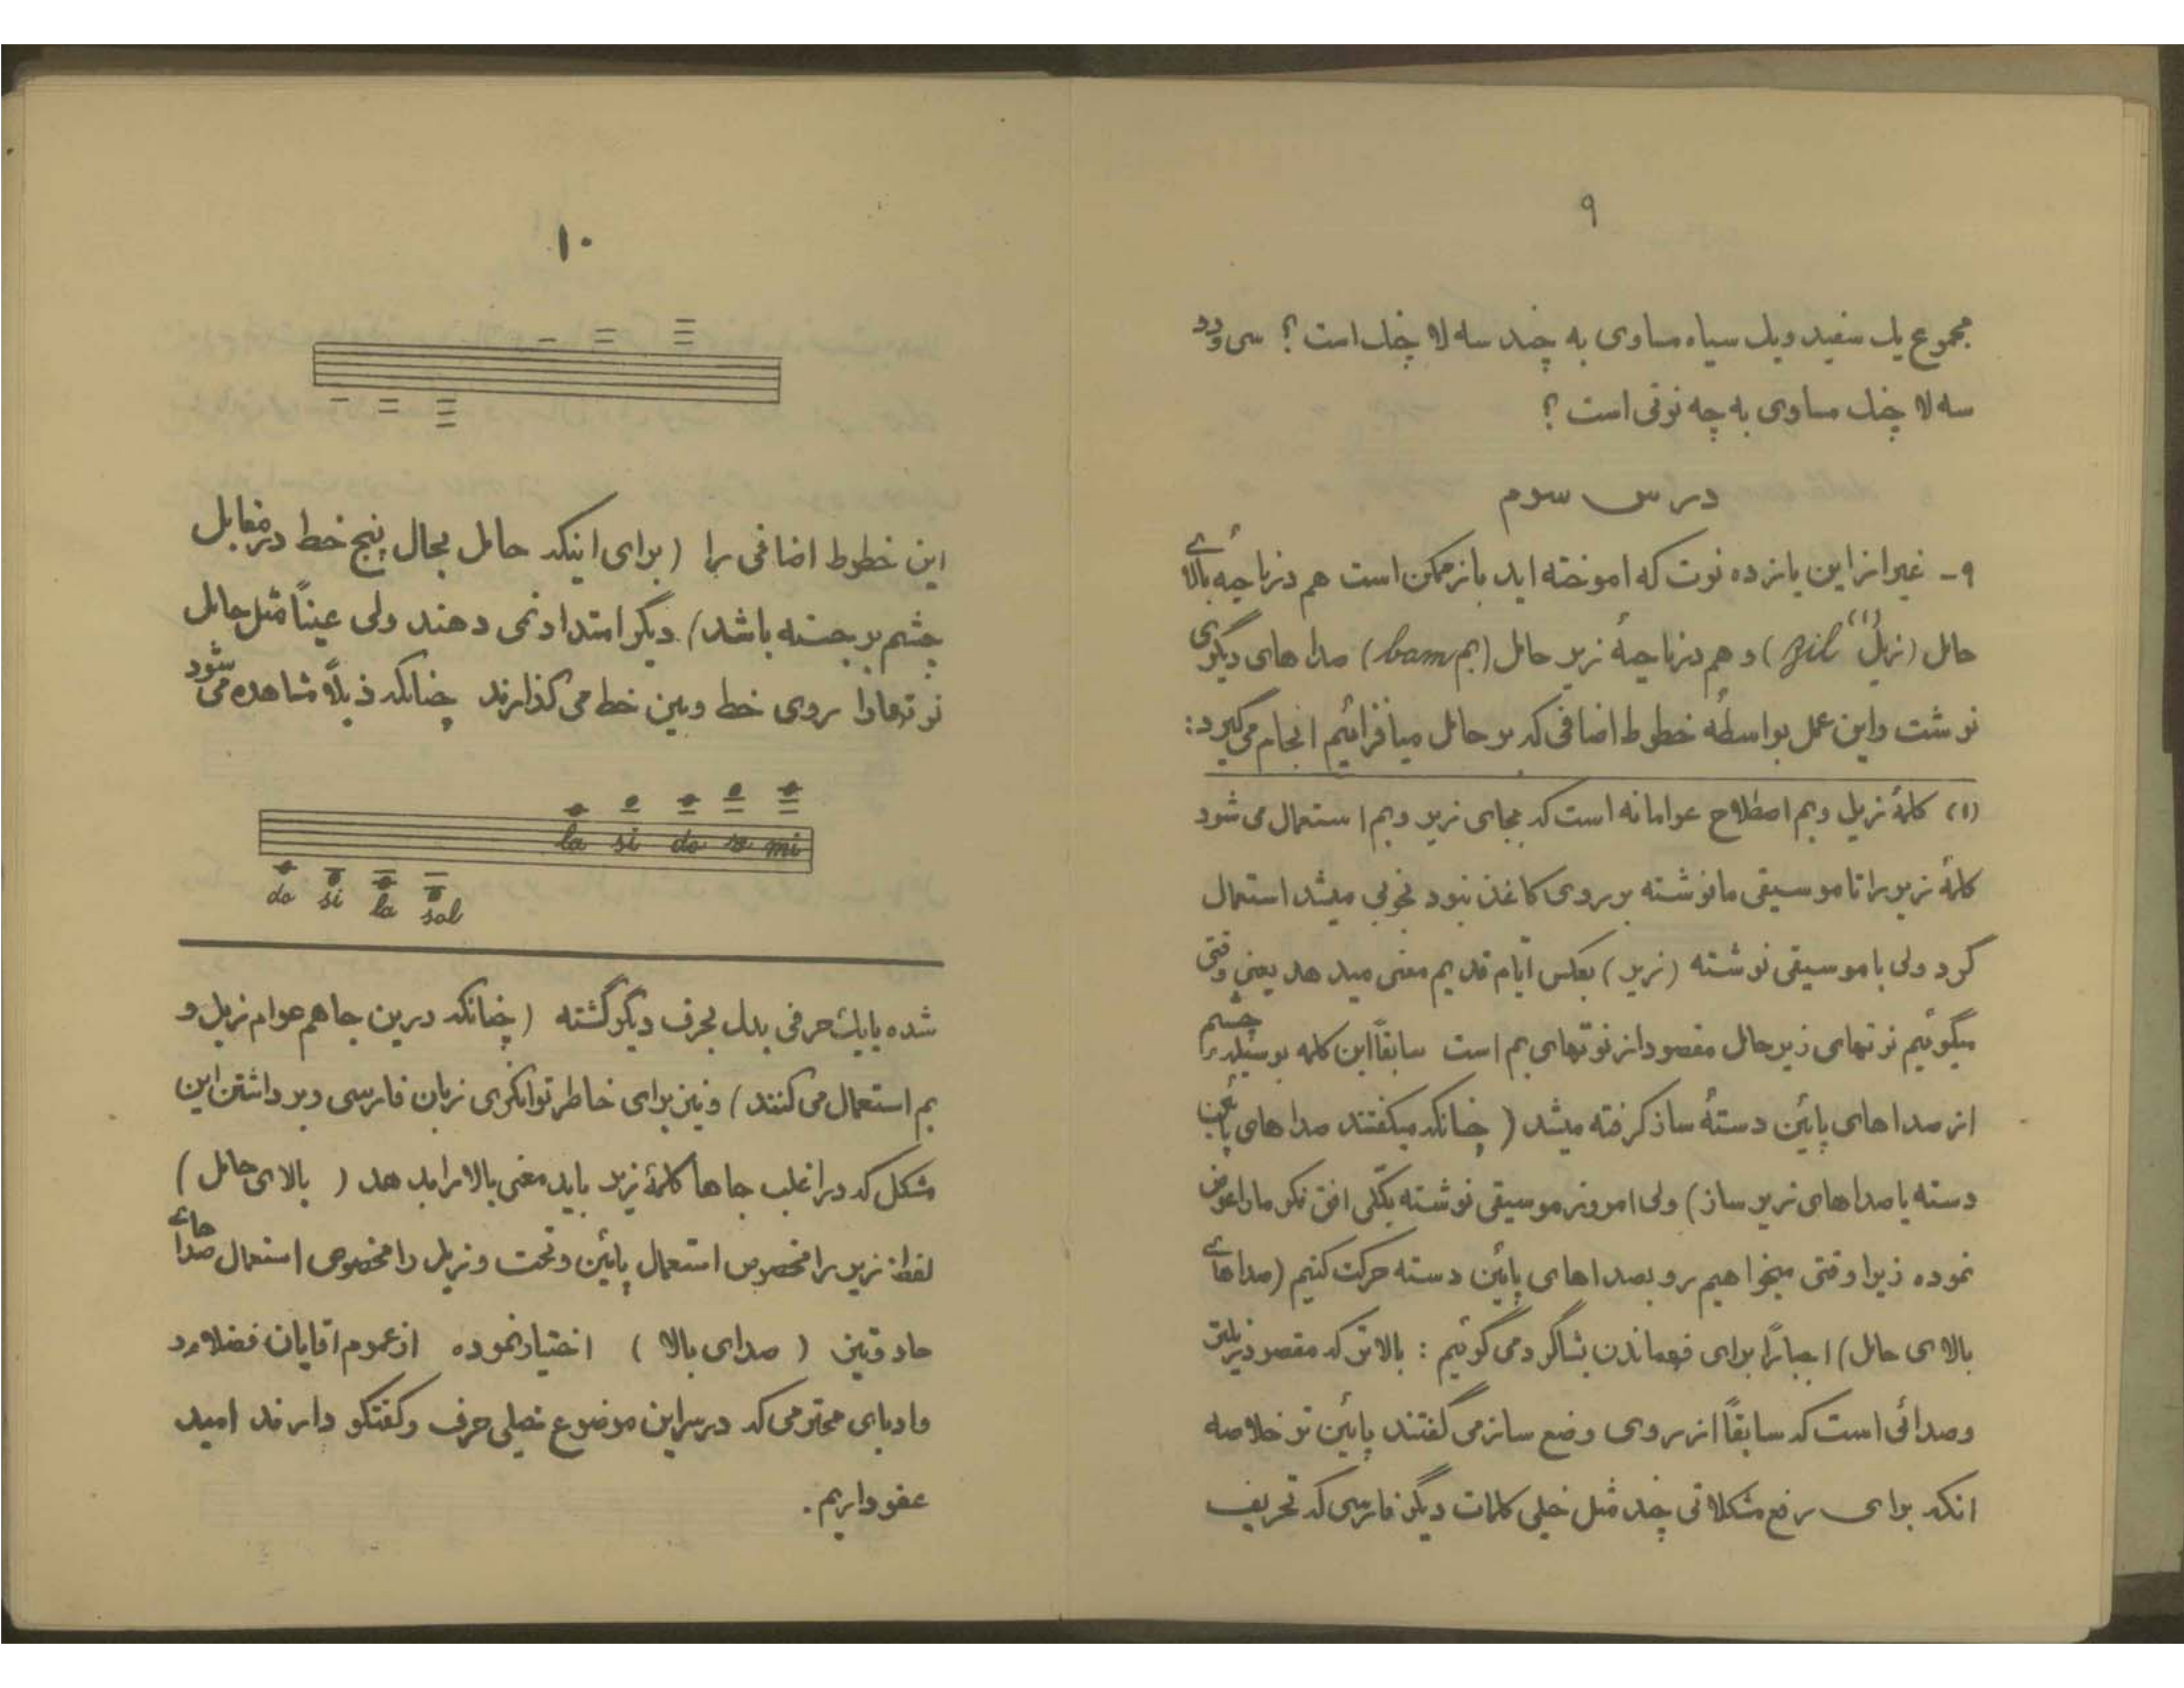 ۹
مجموع یک سفید و یک سیاه مساوی به چند سه لا چنگ است ؟ سی و دو
سه لا چنگ مساوی به چه نوتی است ؟
درس سوم
۹ - غیر از این یانزده نوت که اموخته اید باز ممکن است هم در ناحیه بالاے
حامل (زیل zil (۱)) و هم در ناحیهٔ زیر حامل (بم bam) صدا های دیگری
نوشت و این عمل بواسطهٔ خطوط اضافی که بر حامل میافزائیم انجام می گیرد :
(۱) کلمهٔ زیل و بم اصطلاح عوامانه است که بجای زیر و بم استعمال می شود
کلمهٔ زیر را تا موسیقی ما نوشته بر روی کاغذ نبود بخوبی میشد استعمال
کرد ولی با موسیقی نوشته (زیر) بعکس ایام قدیم معنی میدهد یعنی وقتی
میگوئیم نوتهای زیر حامل مقصود از نوتهای بم است سابقاً این کلمه بوسیله چشم
از صدا های پائین دستهٔ ساز گرفته میشد ( چنانکه میگفتند صدا های پائین
دسته یا صدا های زیر ساز) ولی امروز موسیقی نوشته بکلی افق فکر ما را عوض
نموده زیرا وقتی میخواهیم رو بصداهای پائین دسته حرکت کنیم (صداهاے
بالای حامل) اجباراً برای فهماندن بشاگرد می گوئیم : بالاتر که مقصود زیلتر
و صدائی است که سابقاً از روی وضع ساز می گفتند پائین تر خلاصه
انکه برای رفع مشکلاتی چند مثل خیلی کلمات دیگر فارسی که تحریف
۱۰
این خطوط اضافی را ( برای اینکه حامل بحال پنج خط در مقابل
چشم برجسته باشد ) دیگر امتداد نمی دهند ولی عیناً مثل حامل
نوتها را روی خط و بین خط می گذارند چنانکه ذیلاً مشاهده می شود
la si do re mi
do si la sol
شده یا یک حرفی بدل بحرف دیگر گشته ( چنانکه درین جا هم عوام زیل و
بم استعمال می کنند ) و نیز برای خاطر توانگری زبان فارسی و برداشتن این
مشکل که در اغلب جاها کلمهٔ زیر باید معنی بالا را بدهد ( بالای حامل )
لفظ زیر را مخصوص استعمال پائین و تحت و زیل را مخصوص استعمال صدا هاے
حاد و تیز ( صدای بالا ) اختیار نموده از عموم اقایان فضلاء
و ادبای محترمی که در سر این موضوع خیلی حرف و گفتگو دارند امید
عفو داریم .